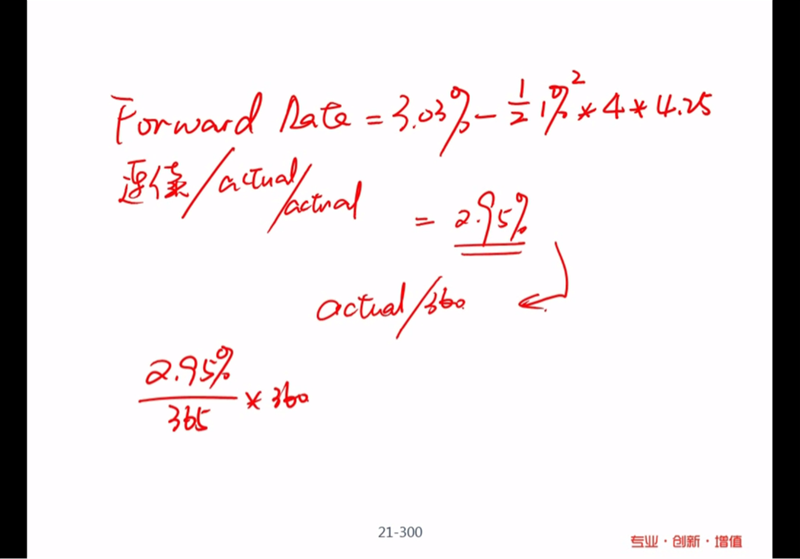 Forward Rate = 3.03% - 1/2 1%² * 4 * 4.25
连续/actual/actual
= 2.95%
actual/360
2.95%/365 * 360
21-300
专业·创新·增值